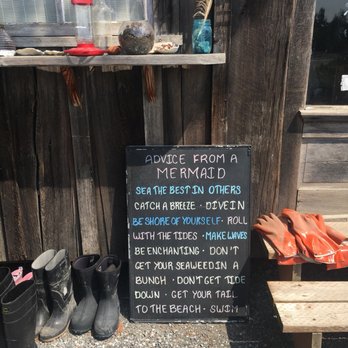 ADVICE FROM A
MERMAID
SEA THE BEST IN OTHERS
CATCH A BREEZE · DIVE IN
BE SHORE OF YOURSELF · ROLL
WITH THE TIDES · MAKE WAVES
BE ENCHANTING · DON'T
GET YOUR SEAWEED IN A
BUNCH · DON'T GET TIDE
DOWN · GET YOUR TAIL
TO THE BEACH · SWIM